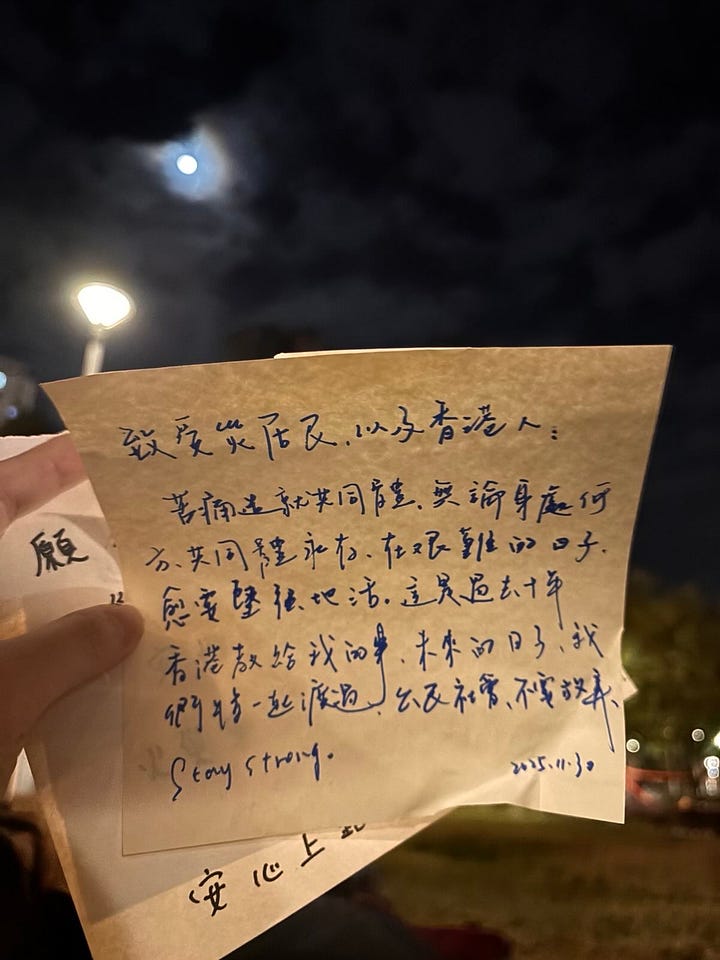 致受災居民、以及香港人：
苦痛造就共同體、無論身處何
方、共同體永存、在艱難的日子、
愈要堅強地活。這是過去十年
香港教給我的事、未來的日子、我
們皆一起渡過、公民社會、不要放棄、
Stay strong.
2025.11.30
願
12
安心上